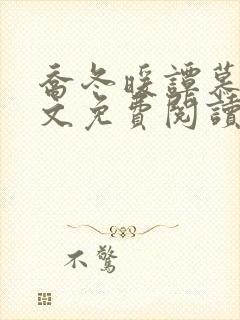 喬冬暖譚慕
文免費閱讀
不驚